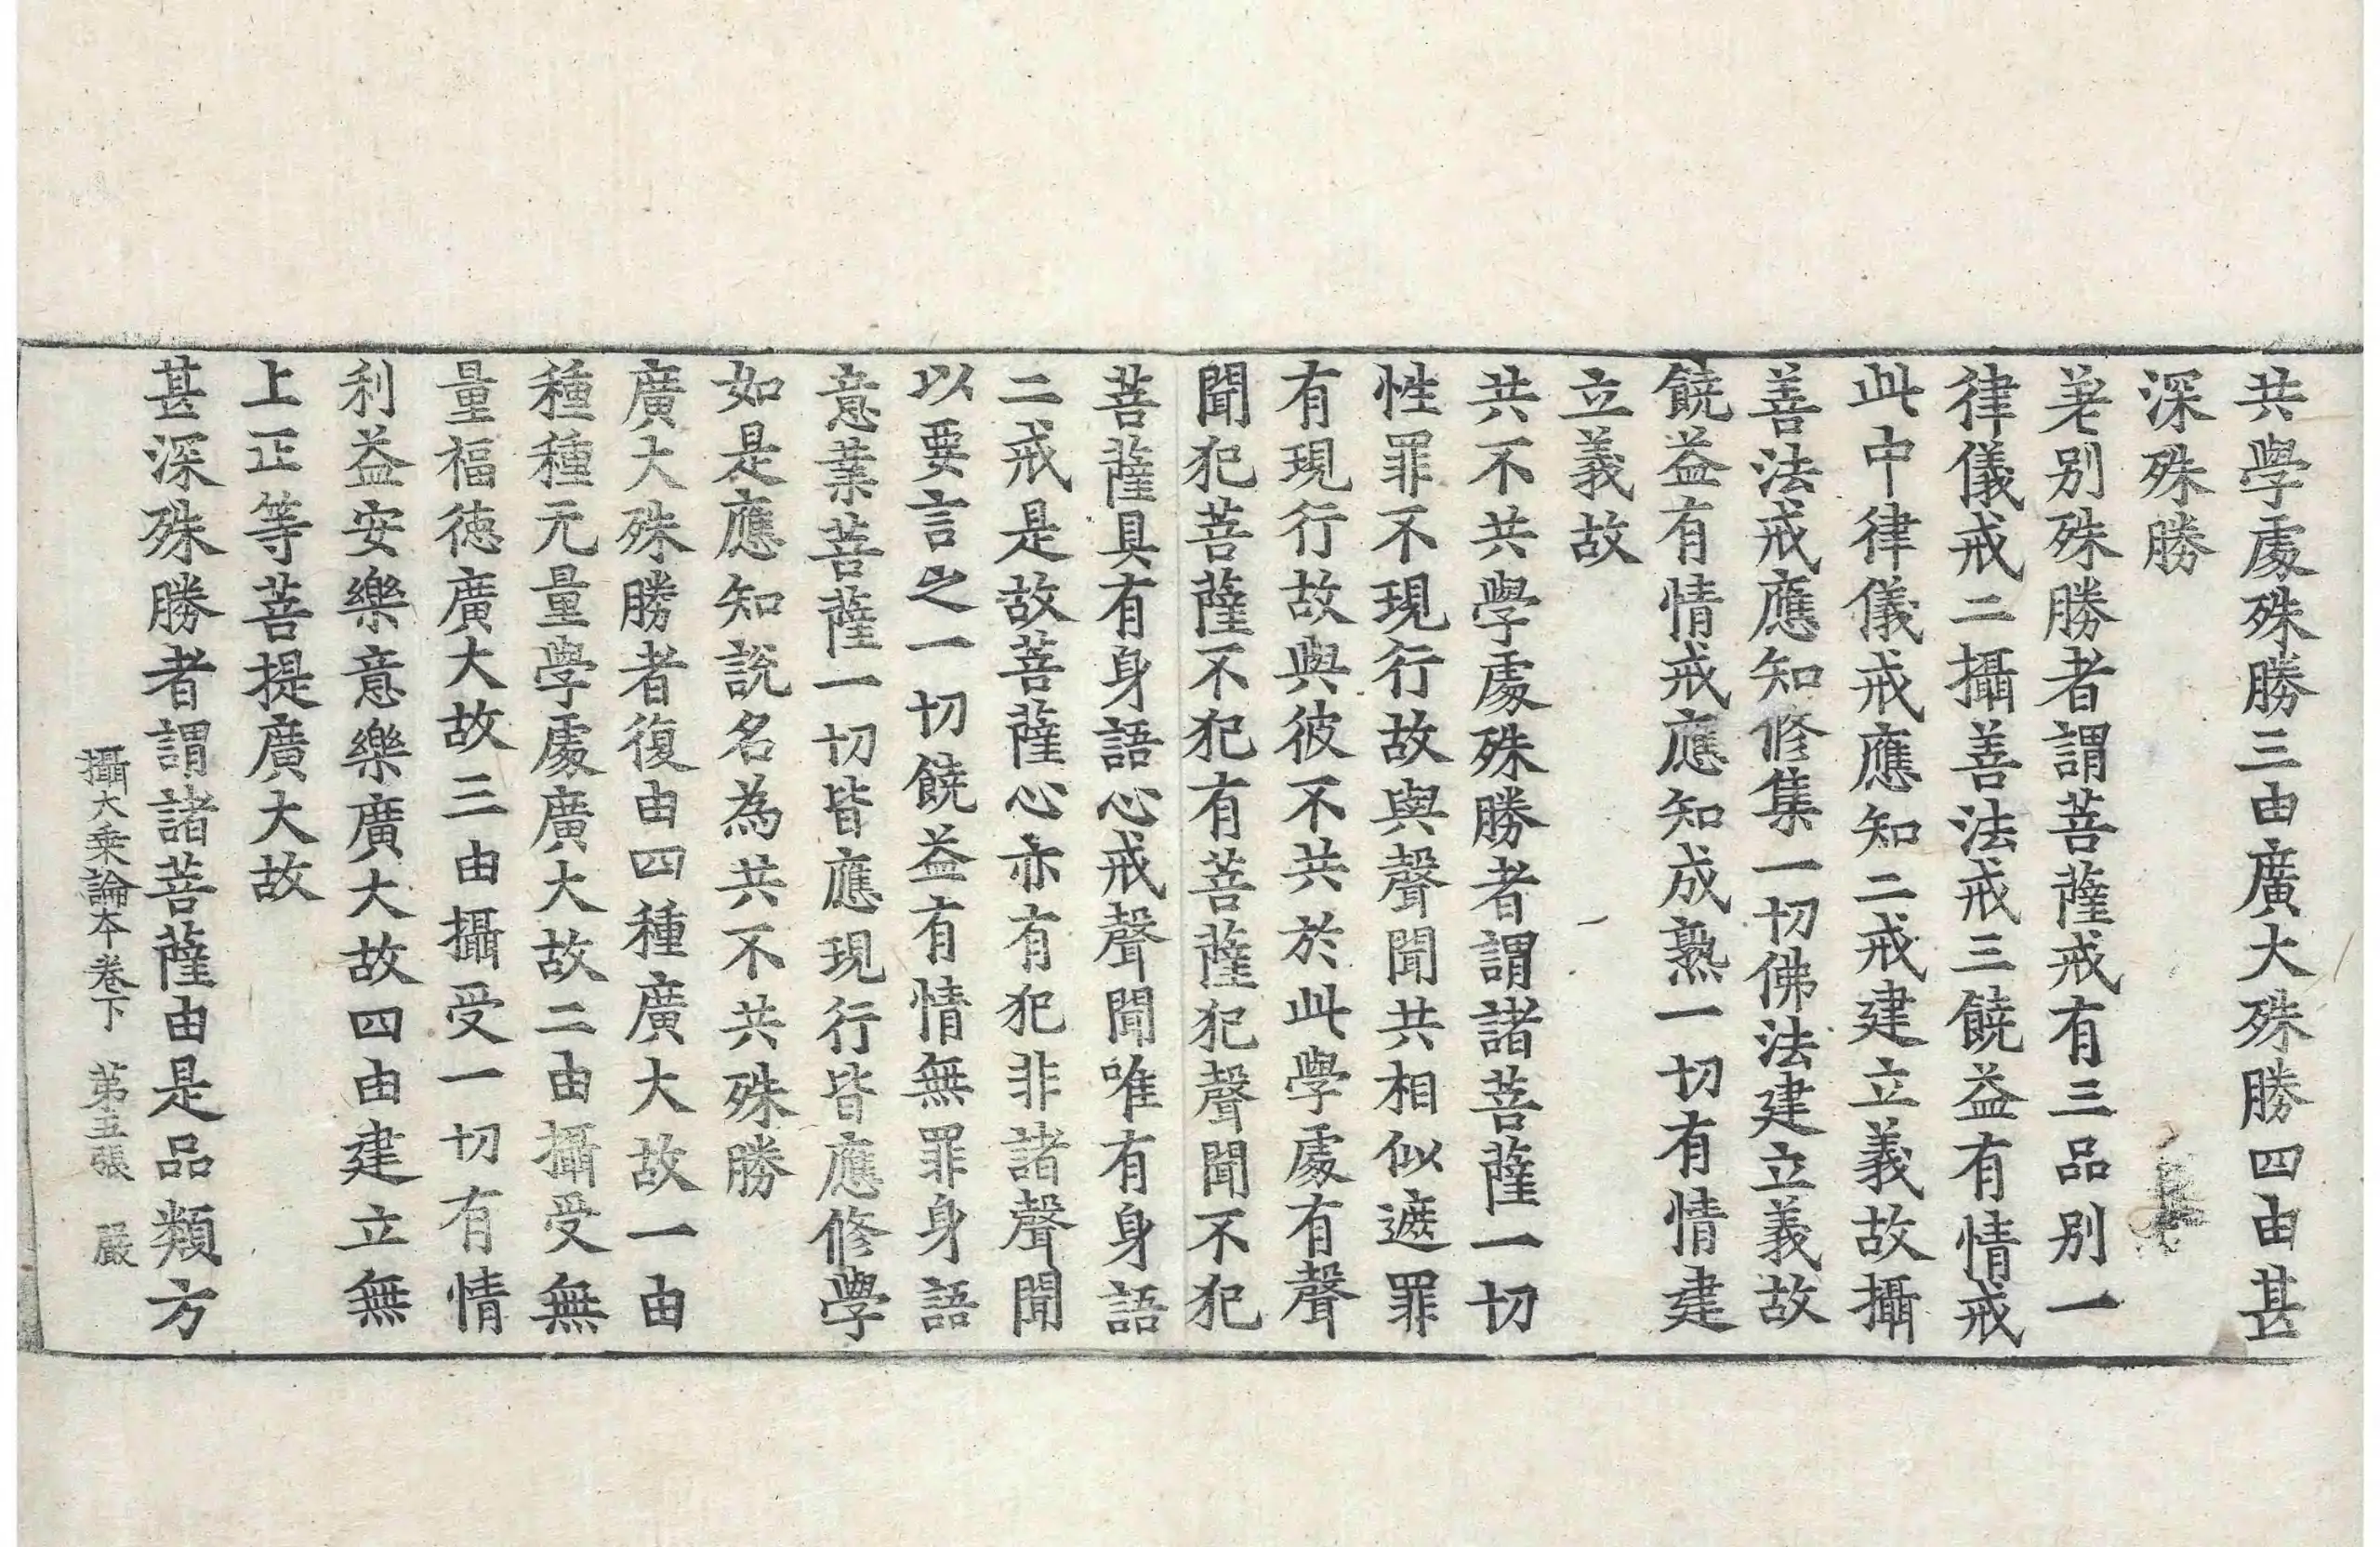 共學處殊勝三由廣大殊勝四由甚
深殊勝
差别殊勝者謂菩薩戒有三品别一
律儀戒二攝善法戒三饒益有情戒
此中律儀戒應知二戒建立義故攝
善法戒應知修集一切佛法建立義故
饒益有情戒應知成熟一切有情建
立義故
共不共學處殊勝者謂諸菩薩一切
性罪不現行故與聲聞共相似遮罪
有現行故與彼不共於此學處有聲
聞犯菩薩不犯有菩薩犯聲聞不犯
菩薩具有身語心戒聲聞唯有身語
二戒是故菩薩心亦有犯非諸聲聞
以要言之一切饒益有情無罪身語
意業菩薩一切皆應現行皆應修學
如是應知說名為共不共殊勝
廣大殊勝者復由四種廣大故一由
種種无量學處廣大故二由攝受無
量福徳廣大故三由攝受一切有情
利益安樂意樂廣大故四由建立無
上正等菩提廣大故
甚深殊勝者謂諸菩薩由是品類方
攝大乗論本卷下 第五張 嚴